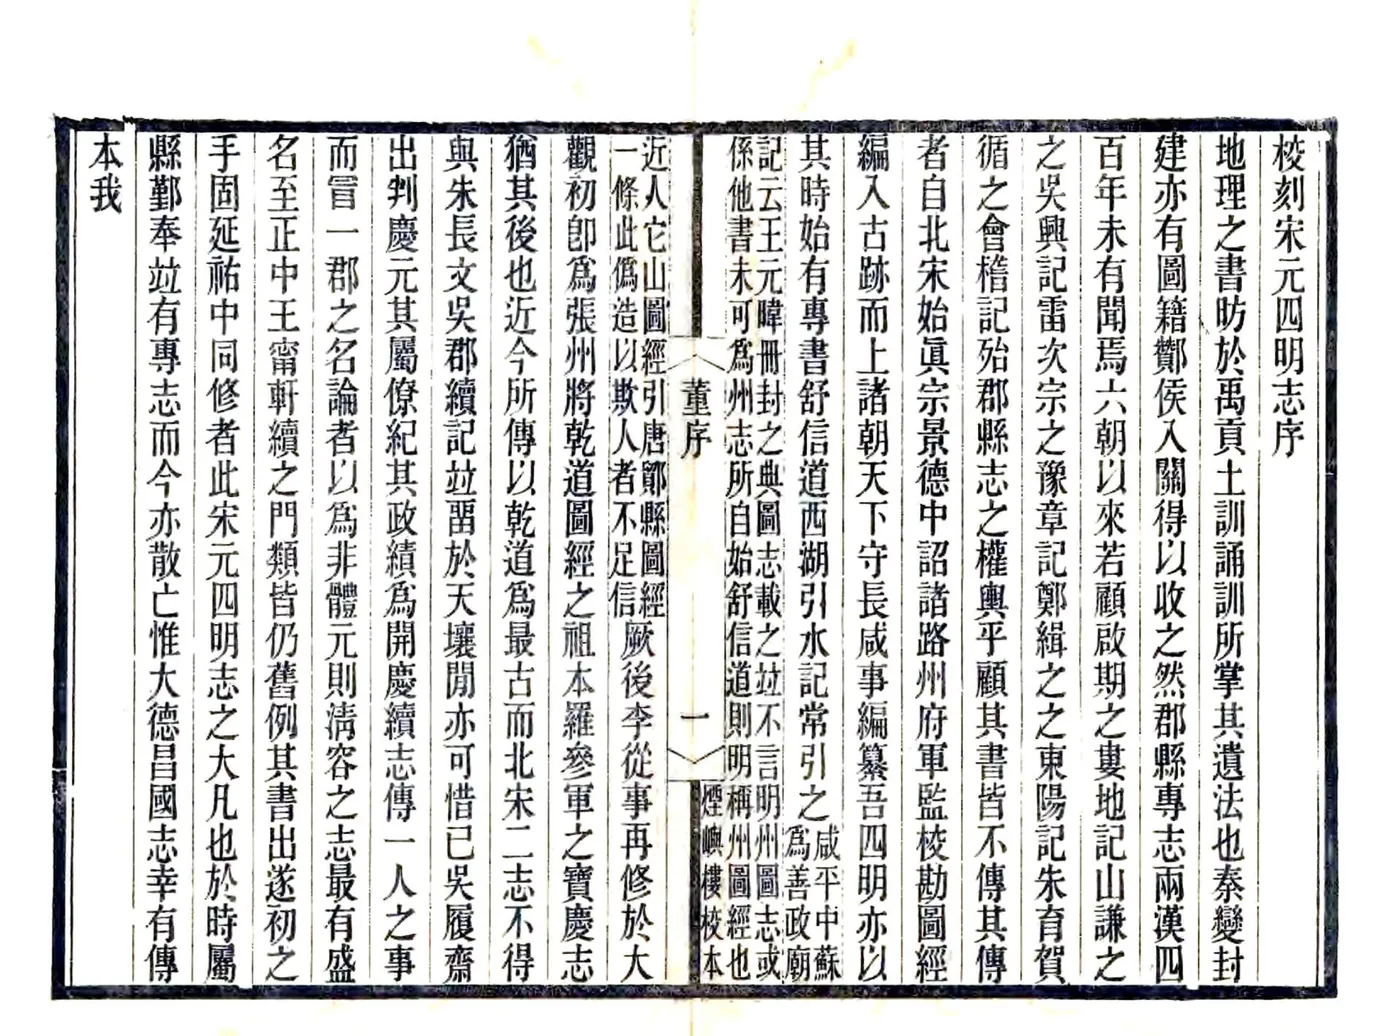 校刻宋元四明志序
地理之書昉於禹貢土訓誦訓所掌其遺法也秦變封
建亦有圖籍酇侯入關得以收之然郡縣專志兩漢四
百年未有聞焉六朝以來若顧啟期之婁地記山謙之
之吳興記雷次宗之豫章記鄭緝之之東陽記朱育賀
循之會稽記殆郡縣志之權輿乎顧其書皆不傳其傳
者自北宋始眞宗景德中詔諸路州府軍監校勘圖經
編入古跡而上諸朝天下守長咸事編纂吾四明亦以
其時始有專書舒信道西湖引水記常引之
咸平中蘇
為善政廟
記云王元暐冊封之典圖志載之竝不言明州圖志或
係他書未可爲州志所自始舒信道則明稱州圖經也
董序
一
煙嶼樓校本
近人它山圖經引唐鄮縣圖經
一條此僞造以欺人者不足信
厥後李從事再修於大
觀初卽爲張州將乾道圖經之祖本羅參軍之寶慶志
猶其後也近今所傳以乾道爲最古而北宋二志不得
與朱長文吳郡續記竝畱於天壤閒亦可惜已吳履齋
出判慶元其屬僚紀其政績爲開慶續志傳一人之事
而冒一郡之名論者以爲非體元則淸容之志最有盛
名至正中王甯軒續之門類皆仍舊例其書出遂初之
手固延祐中同修者此宋元四明志之大凡也於時屬
縣鄞奉竝有專志而今亦散亡惟大德昌國志幸有傳
本我